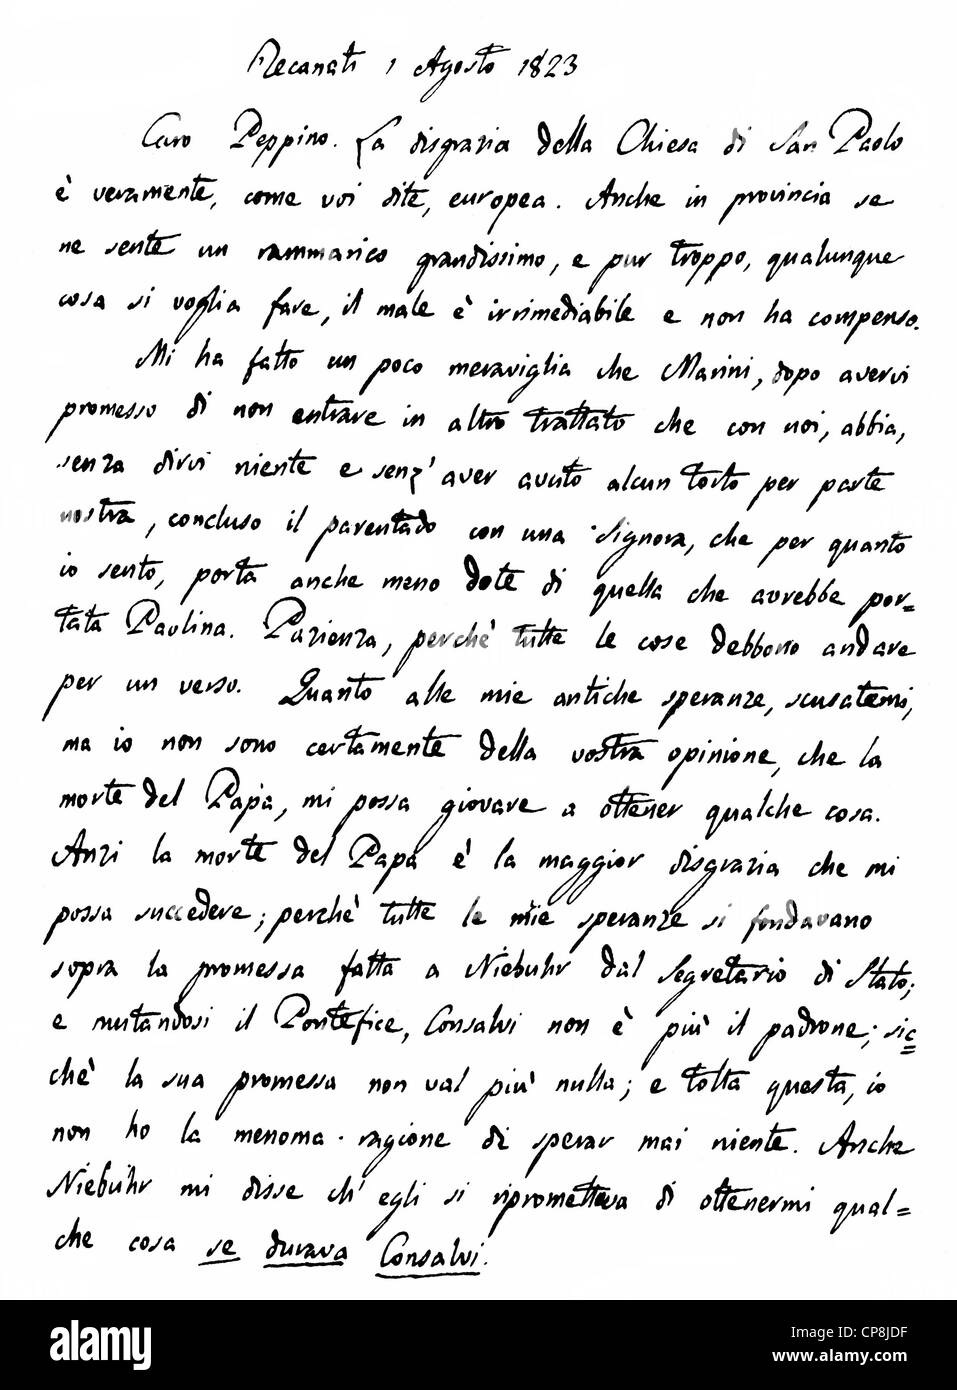 Recanati 1 Agosto 1823
Caro Peppino. La disgrazia della Chiesa di San Paolo
è veramente, come voi dite, europea. Anche in provincia se
ne sente un rammarico grandissimo, e pur troppo, qualunque
cosa si voglia fare, il male è irrimediabile e non ha compenso.
Mi ha fatto un poco meraviglia che Marini, dopo avervi
promesso di non entrare in altro trattato che con noi, abbia,
senza dirvi niente e senz' aver avuto alcun torto per parte
nostra, concluso il parentado con una Signora, che per quanto
io sento, porta anche meno dote di quella che avrebbe por=
tata Paolina. Pazienza, perchè tutte le cose debbono andare
per un verso. Quanto alle mie antiche speranze, scusatemi,
ma io non sono certamente della vostra opinione, che la
morte del Papa, mi possa giovare a ottener qualche cosa.
Anzi la morte del Papa è la maggior disgrazia che mi
possa succedere; perchè tutte le mie speranze si fondavano
sopra la promessa fatta a Niebuhr dal Segretario di Stato;
e mutandosi il Pontefice, Consalvi non è più il padrone; sic=
chè la sua promessa non val più nulla; e tolta questa, io
non ho la menoma ragione di sperar mai niente. Anche
Niebuhr mi disse ch' egli si riprometteva di ottenermi qual=
che cosa se durava Consalvi.
alamy
Image ID: CP8JDF
www.alamy.com